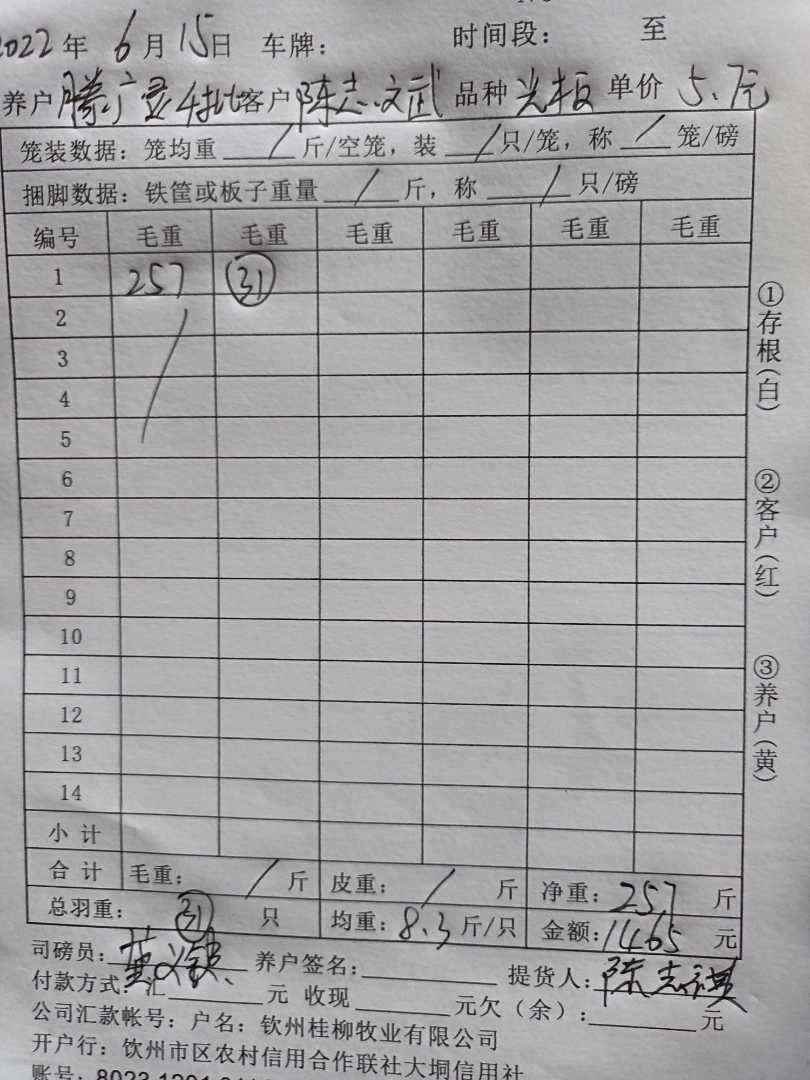 2022年 6月15日 车牌： 时间段： 至
养户 滕广灵4批 客户 陈志文武 品种 光板 单价 5.7元
笼装数据：笼均重 / 斤/空笼，装 / 只/笼，称 / 笼/磅
捆脚数据：铁筐或板子重量 / 斤，称 / 只/磅
编号 毛重 毛重 毛重 毛重 毛重 毛重
1 257 ㉛
2 /
3
4
5
6
7
8
9
10
11
12
13
14
小计
合计 毛重： / 斤 皮重： / 斤 净重：257 斤
总羽重： ㉛ 只 均重：8.3斤/只 金额：1465 元
司磅员： 养户签名： 提货人：陈志祺
付款方式：汇 元 收现 元欠（余）： 元
公司汇款帐号：户名：钦州桂柳牧业有限公司
开户行：钦州市区农村信用合作联社大垌信用社
账号：
①存根（白）
②客户（红）
③养户（黄）